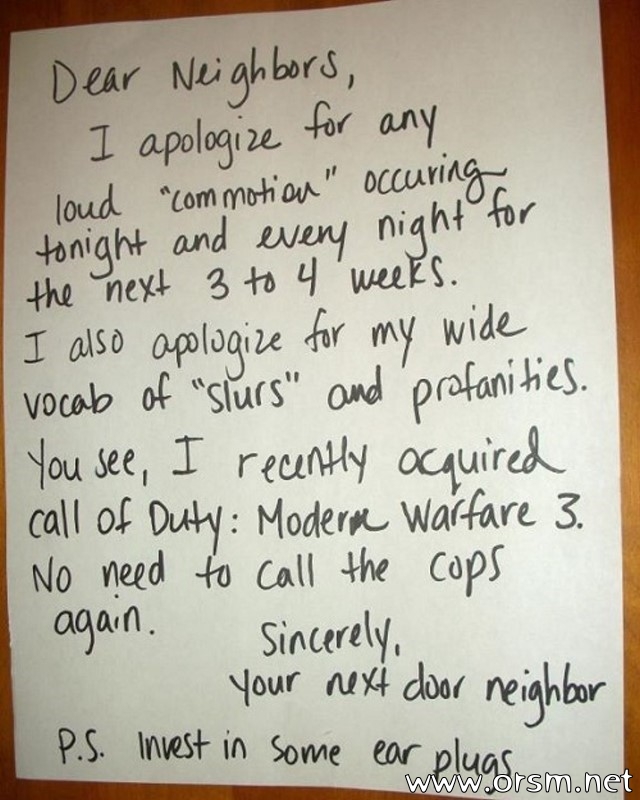 Dear Neighbors,
I apologize for any
loud "commotion" occuring
tonight and every night for
the next 3 to 4 weeks.
I also apologize for my wide
vocab of "slurs" and profanities.
You see, I recently acquired
call of Duty: Modern Warfare 3.
No need to call the cops
again.
Sincerely,
Your next door neighbor
P.S. Invest in some ear plugs
www.orsm.net